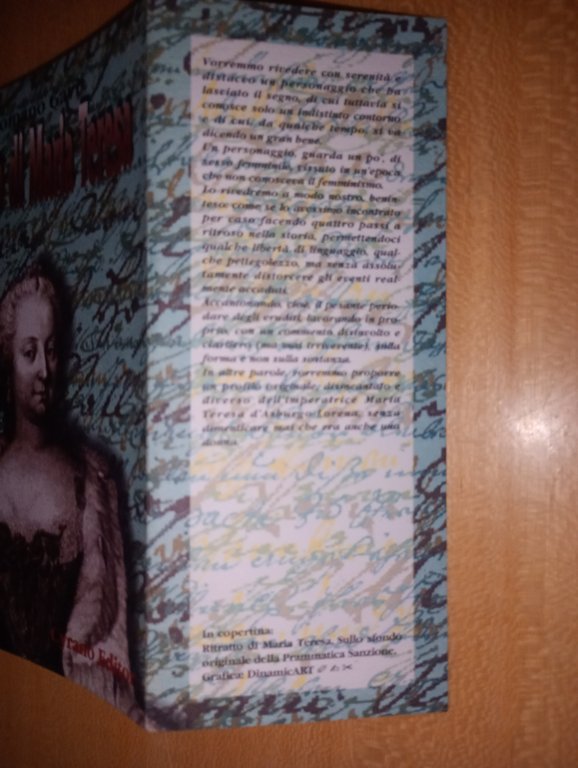 Maria Teresa
Editore
Vorremmo rivedere con serenità e
distacco un personaggio che ha
lasciato il segno, di cui tuttavia si
conosce solo un indistinto contorno
e di cui, da qualche tempo, si va
dicendo un gran bene.
Un personaggio, guarda un po', di
sesso femminile, vissuto in un'epoca
che non conosceva il femminismo.
Lo rivedremo a modo nostro, benin-
teso: come se lo avessimo incontrato
per caso facendo quattro passi a
ritroso nella storia, permettendoci
qualche libertà di linguaggio, qual-
che pettegolezzo, ma senza assolu-
tamente distorcere gli eventi real-
mente accaduti.
Accantonando, cioè, il pesante perio-
dare degli eruditi, lavorando in pro-
prio, con un commento distaccato e
ciarliero (ma mai irriverente), sulla
forma e non sulla sostanza.
In altre parole, vorremmo proporre
un profilo originale, disincantato e
diverso dell'imperatrice Maria
Teresa d'Asburgo-Lorena, senza
dimenticare mai che era anche una
donna.
In copertina:
Ritratto di Maria Teresa. Sullo sfondo
originale della Prammatica Sanzione.
Grafica: DinamicART